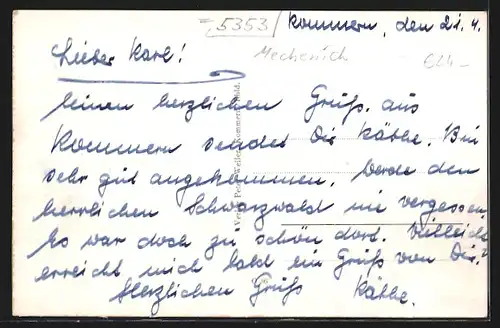 = 5353 Kommern, den 21.4.
Mechernich
Lieber Karl!
Einen herzlichen Gruß aus
Kommern sendet Dir Käthe. Bin
sehr gut angekommen. Werde den
herrlichen Schwarzwald nie vergessen.
Es war doch zu schön dort. Vielleicht
erreicht mich bald ein Gruß von Dir.
Herzlichen Gruß Käthe.